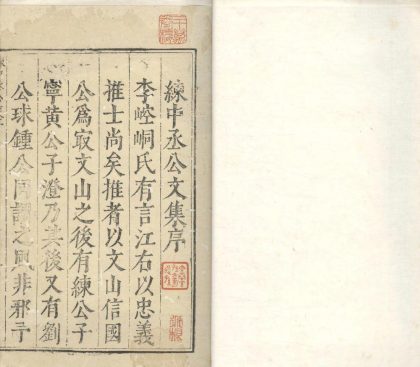 練中丞公文集序
李崆峒氏有言江右以忠義
推士尚矣推者以文山信國
公爲㝡文山之後有練公子
寧黄公子澄乃其後又有劉
公球鍾公同謂之風非邪予